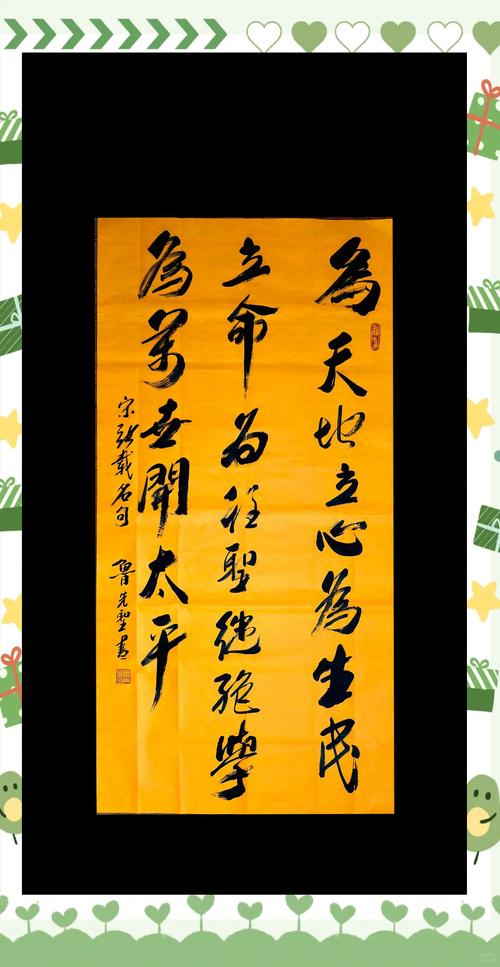 為天地立心為生民
立命为往聖继绝學
為萬世開太平
宋张載名句
魯先聖書